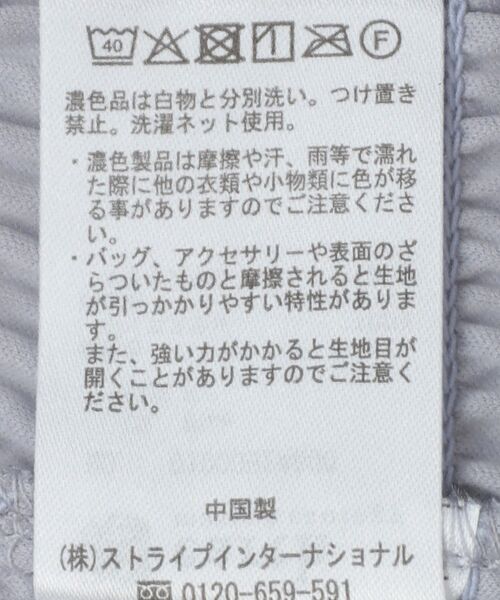 40 F
濃色品は白物と分別洗い。つけ置き
禁止。洗濯ネット使用。
・濃色製品は摩擦や汗、雨等で濡れ
た際に他の衣類や小物類に色が移
る事がありますのでご注意くださ
い。
・バッグ、アクセサリーや表面のざ
らついたものと摩擦されると生地
が引っかかりやすい特性がありま
す。
また、強い力がかかると生地目が
開くことがありますのでご注意く
ださい。
中国製
(株)ストライプインターナショナル
0120-659-591